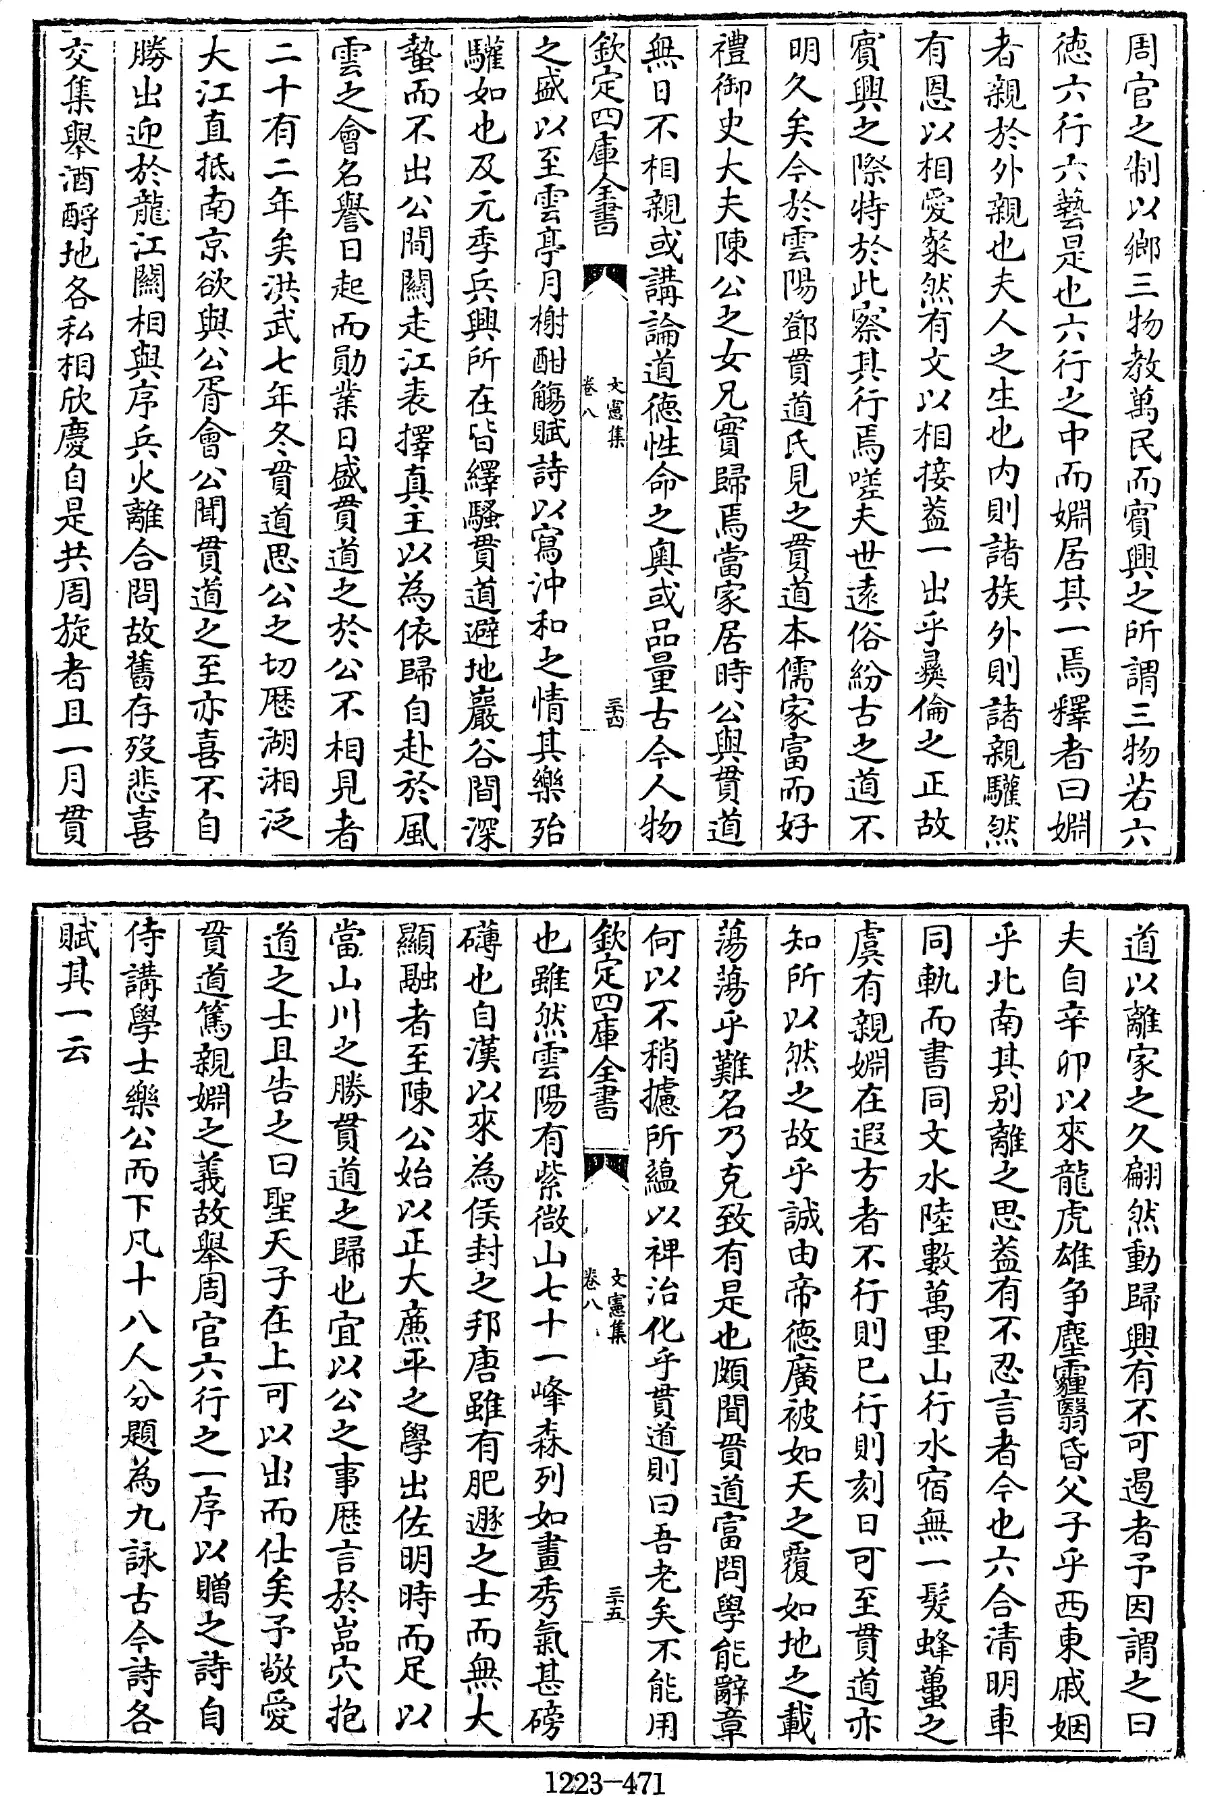 周官之制以鄉三物教萬民而賓興之所謂三物若六
德六行六藝是也六行之中而婣居其一焉釋者曰婣
者親於外親也夫人之生也内則諸族外則諸親驩然
有恩以相愛粲然有文以相接葢一出乎彛倫之正故
賓興之際特於此察其行焉嗟夫世逺俗紛古之道不
明久矣今於雲陽鄧貫道氏見之貫道本儒家富而好
禮御史大夫陳公之女兄實歸焉當家居時公與貫道
無日不相親或講論道德性命之奥或品量古今人物
欽定四庫全書
文憲集
卷八
三十四
之盛以至雲亭月榭酣觴賦詩以寫沖和之情其樂殆
驩如也及元季兵興所在皆繹騷貫道避地巖谷間深
蟄而不出公間闗走江表擇真主以為依歸自赴於風
雲之會名譽日起而勛業日盛貫道之於公不相見者
二十有二年矣洪武七年冬貫道思公之切厯湖湘泛
大江直抵南京欲與公胥會公聞貫道之至亦喜不自
勝出迎於龍江闗相與序兵火離合問故舊存殁悲喜
交集舉酒酹地各私相欣慶自是共周旋者且一月貫
道以離家之久翩然動歸興有不可遏者予因謂之曰
夫自辛卯以來龍虎雄争塵霾翳昏父子乎西東戚姻
乎北南其别離之思葢有不忍言者今也六合清明車
同軌而書同文水陸數萬里山行水宿無一髮蜂蠆之
虞有親婣在遐方者不行則已行則刻日可至貫道亦
知所以然之故乎誠由帝德廣被如天之覆如地之載
蕩蕩乎難名乃克致有是也頗聞貫道富問學能辭章
何以不稍攄所藴以裨治化乎貫道則曰吾老矣不能用
欽定四庫全書
文憲集
卷八
三十五
也雖然雲陽有紫微山七十一峰森列如畫秀氣甚磅
礴也自漢以來為侯封之邦唐雖有肥遯之士而無大
顯融者至陳公始以正大亷平之學出佐明時而足以
當山川之勝貫道之歸也宜以公之事厯言於嵓穴抱
道之士且告之曰聖天子在上可以出而仕矣予敬愛
貫道篤親婣之義故舉周官六行之一序以贈之詩自
侍講學士樂公而下凡十八人分題為九詠古今詩各
賦其一云
1223-471